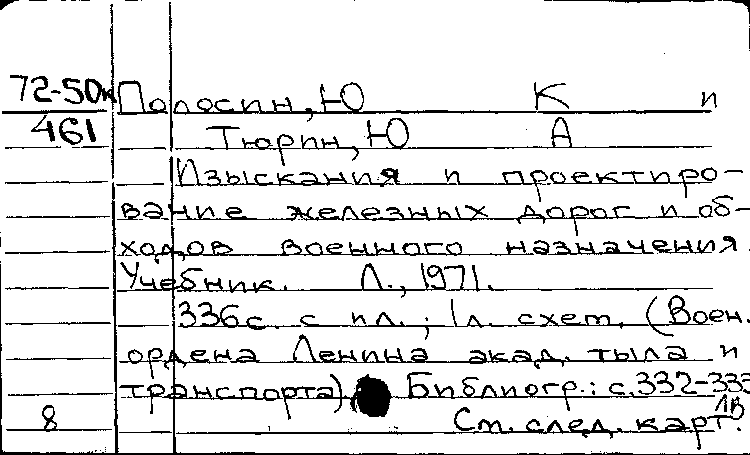 72-50к Полосин, Ю К и
461 Тюрин, Ю А
Изыскания и проектиро-
вание железных дорог и об-
ходов военного назначения.
Учебник. Л., 1971.
336с. с ил.; 1л. схем. (Воен.
ордена Ленина акад. тыла и
транспорта) Библиогр.: с.332-333
8 См. след. карт.